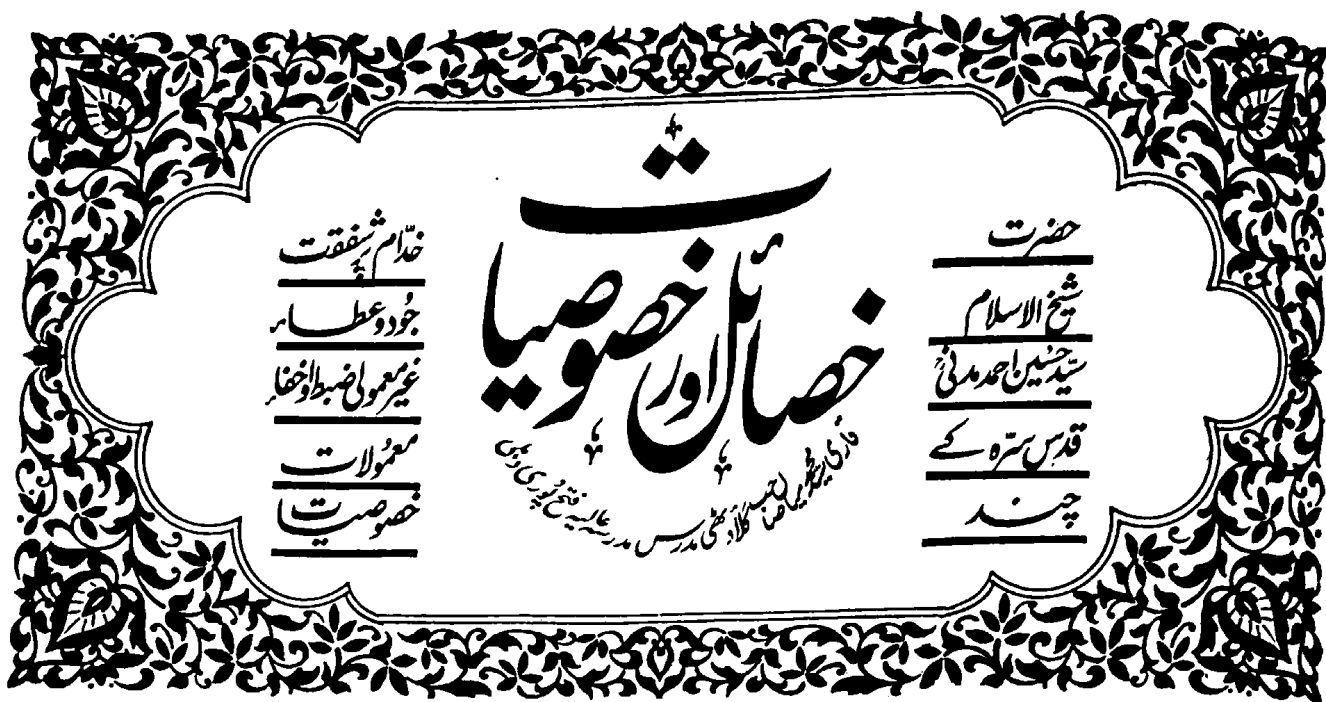 حضرت
شیخ الاسلام
سیّد حسین احمد مدنیؒ
قدس سرّہ کے
چند
خصائل اور خصوصیات
قاری سید محمد میاں صاحب گلاؤٹھی مدرس مدرسہ عالیہ فتح پوری دہلی
خدّام پر شفقت
جُود و عطاء
غیر معمولی ضبط و اخفاء
معمُولات
خصوصیات